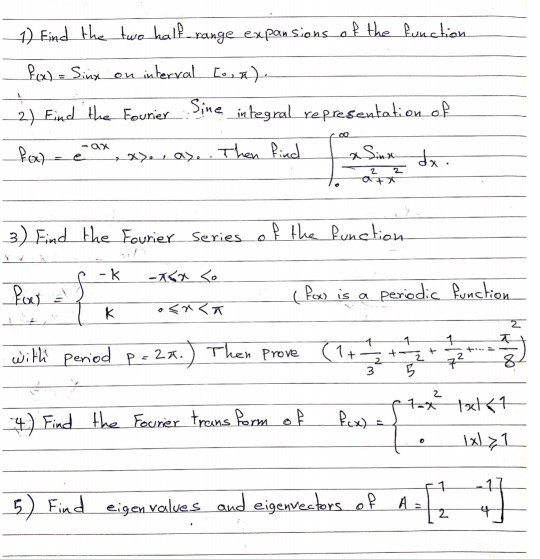 1) Find the two half-range expansions of the function
f(x) = Sinx on interval [0, π).
2) Find the Fourier Sine integral representation of
f(x) = e^{-ax}, x>0, a>0. Then find ∫_0^∞ x Sinx / (a^2+x^2) dx.
3) Find the Fourier series of the function
f(x) = { -k   -π<x<0 ; k   0≤x<π   (f(x) is a periodic function
with period p = 2π.) Then prove (1 + 1/3^2 + 1/5^2 + 1/7^2 + ... = π^2/8)
4) Find the Fourier transform of f(x) = { 1-x^2   |x|<1 ; 0   |x|≥1
5) Find eigenvalues and eigenvectors of A = [1 -1 ; 2 4]